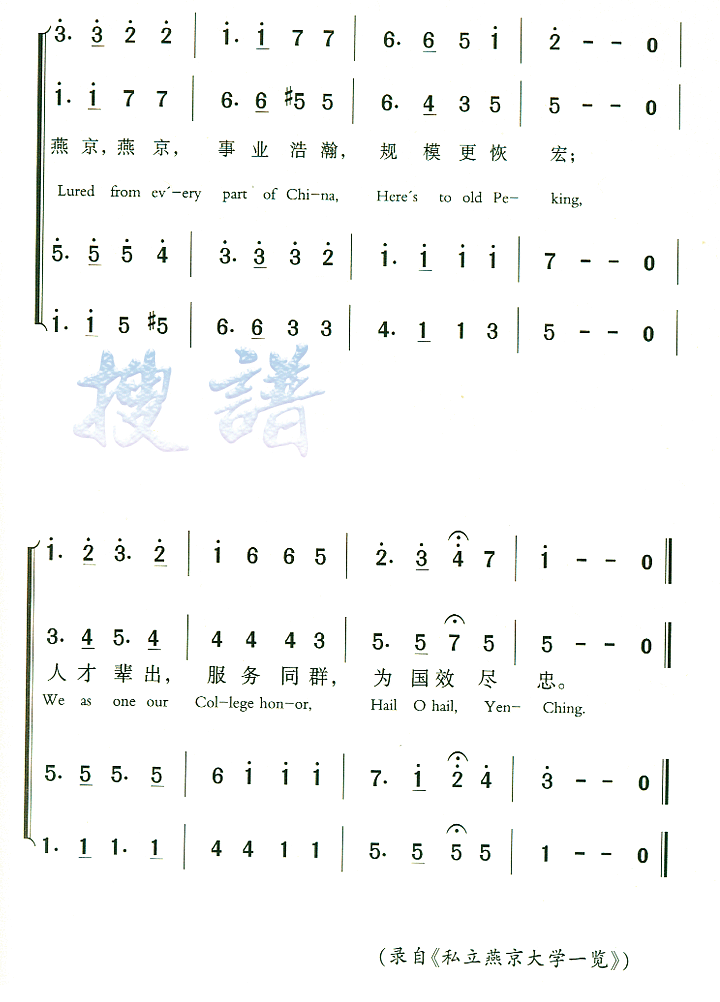 3. 3 2 2 | 1. 1 7 7 | 6. 6 5 1 | 2 - - 0 |
1. 1 7 7 | 6. 6 #5 5 | 6. 4 3 5 | 5 - - 0 |
燕京，燕京， 事业浩瀚， 规模更恢宏；
Lured from ev´-ery part of Chi-na, Here´s to old Pe- king,
5. 5 5 4 | 3. 3 3 2 | 1. 1 1 1 | 7 - - 0 |
1. 1 5 #5 | 6. 6 3 3 | 4. 1 1 3 | 5 - - 0 |
搜譜
1. 2 3. 2 | 1 6 6 5 | 2. 3 4 7 | 1 - - 0 ‖
3. 4 5. 4 | 4 4 4 3 | 5. 5 7 5 | 5 - - 0 ‖
人才辈出， 服务同群， 为国效尽忠。
We as one our Col-lege hon-or, Hail O hail, Yen- Ching.
5. 5 5. 5 | 6 1 1 1 | 7. 1 2 4 | 3 - - 0 ‖
1. 1 1. 1 | 4 4 1 1 | 5. 5 5 5 | 1 - - 0 ‖
(录自《私立燕京大学一览》)